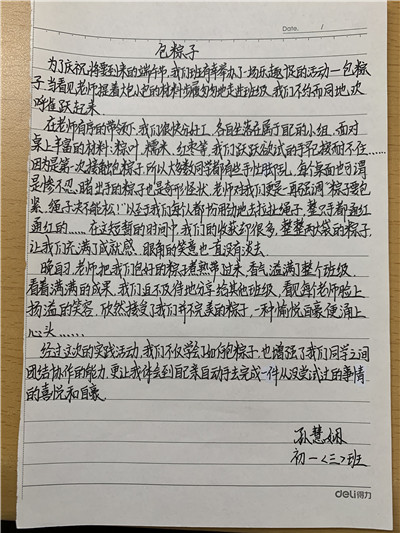 Date. /
包粽子
为了庆祝将要到来的端午节，我们班有幸举办了一场乐趣的活动—包粽
子。当看见老师提着大包小包的材料步履匆匆地走进班级，我们不约而同地欢
呼雀跃起来。
在老师有序的带领下，我们很快分好工，各自坐在属于自己的小组，面对
桌上丰富的材料：粽叶、糯米、红枣等，我们跃跃欲试的手已按耐不住……
因为是第一次接触包粽子，所以大多数同学都有些手忙脚乱，每个桌面也可谓
是惨不忍睹，出手的粽子也是奇形怪状，老师对我们更是一再强调“粽子要包
紧，绳子头不能松！”以至于我们每个人都十分用劲地去拉扯绳子，整只手都通红
通红的……在这短暂的时间中，我们的收获却很多，整整两大袋的粽子，
让我们充满了成就感，眼角的笑意也一直没有淡去。
晚自习，老师把我们包好的粽子煮熟带过来，香气溢满了整个班级，
看着满满的成果，我们迫不及待地分享给其他班级，看见每个老师脸上
扬溢的笑容，欣然接受了我们并不完美的粽子，一种愉悦自豪便涌上
心头……
经过这次的实践活动，我们不仅学会如何包粽子，也增强了我们同学之间
团结协作的能力，更让我体会到自己亲自动手去完成一件从没尝试过的事情
的喜悦和自豪。
孙慧娴
初一〈三〉班
deli得力